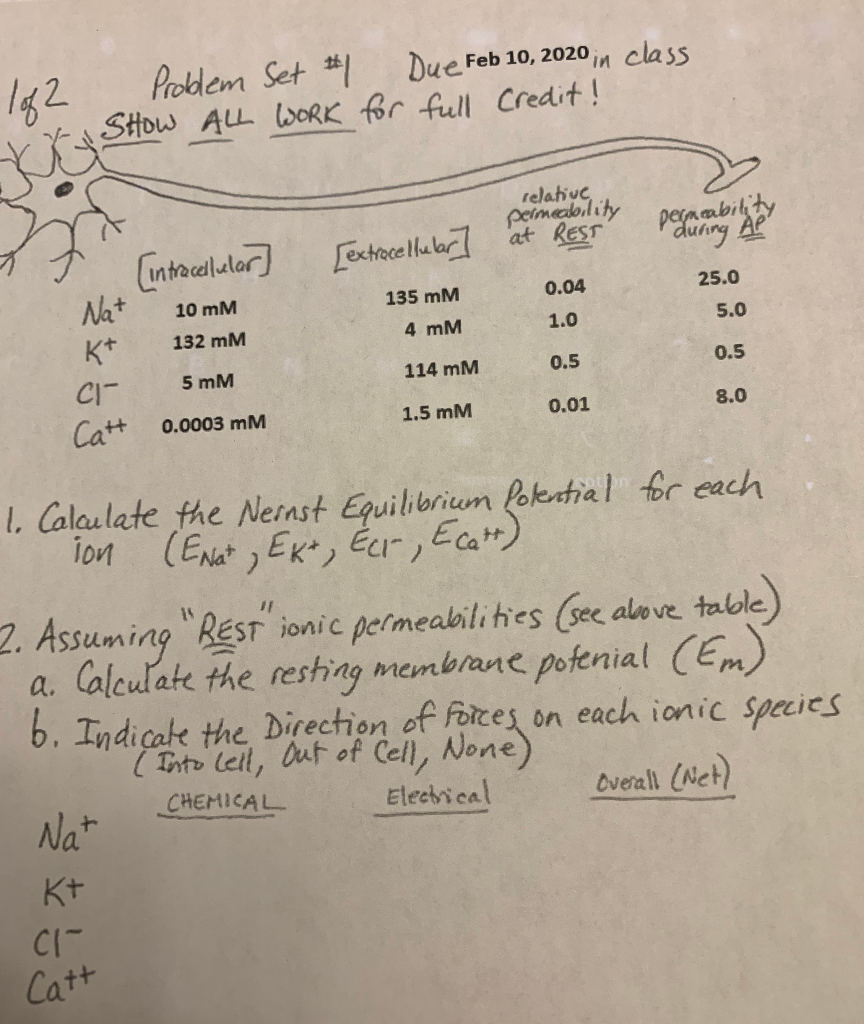 1 of 2
Problem Set #1 Due Feb 10, 2020 in class
SHOW ALL WORK for full Credit!
[intracellular] [extracellular] relative permeability at REST permeability during AP
Na+ 10 mM 135 mM 0.04 25.0
K+ 132 mM 4 mM 1.0 5.0
Cl- 5 mM 114 mM 0.5 0.5
Ca++ 0.0003 mM 1.5 mM 0.01 8.0
1. Calculate the Nernst Equilibrium Potential for each
ion (ENa+, EK+, ECl-, ECa++)
2. Assuming "REST" ionic permeabilities (see above table)
a. Calculate the resting membrane potenial (Em)
b. Indicate the Direction of Forces on each ionic species
(Into Cell, Out of Cell, None)
CHEMICAL Electrical Overall (Net)
Na+
K+
Cl-
Ca++